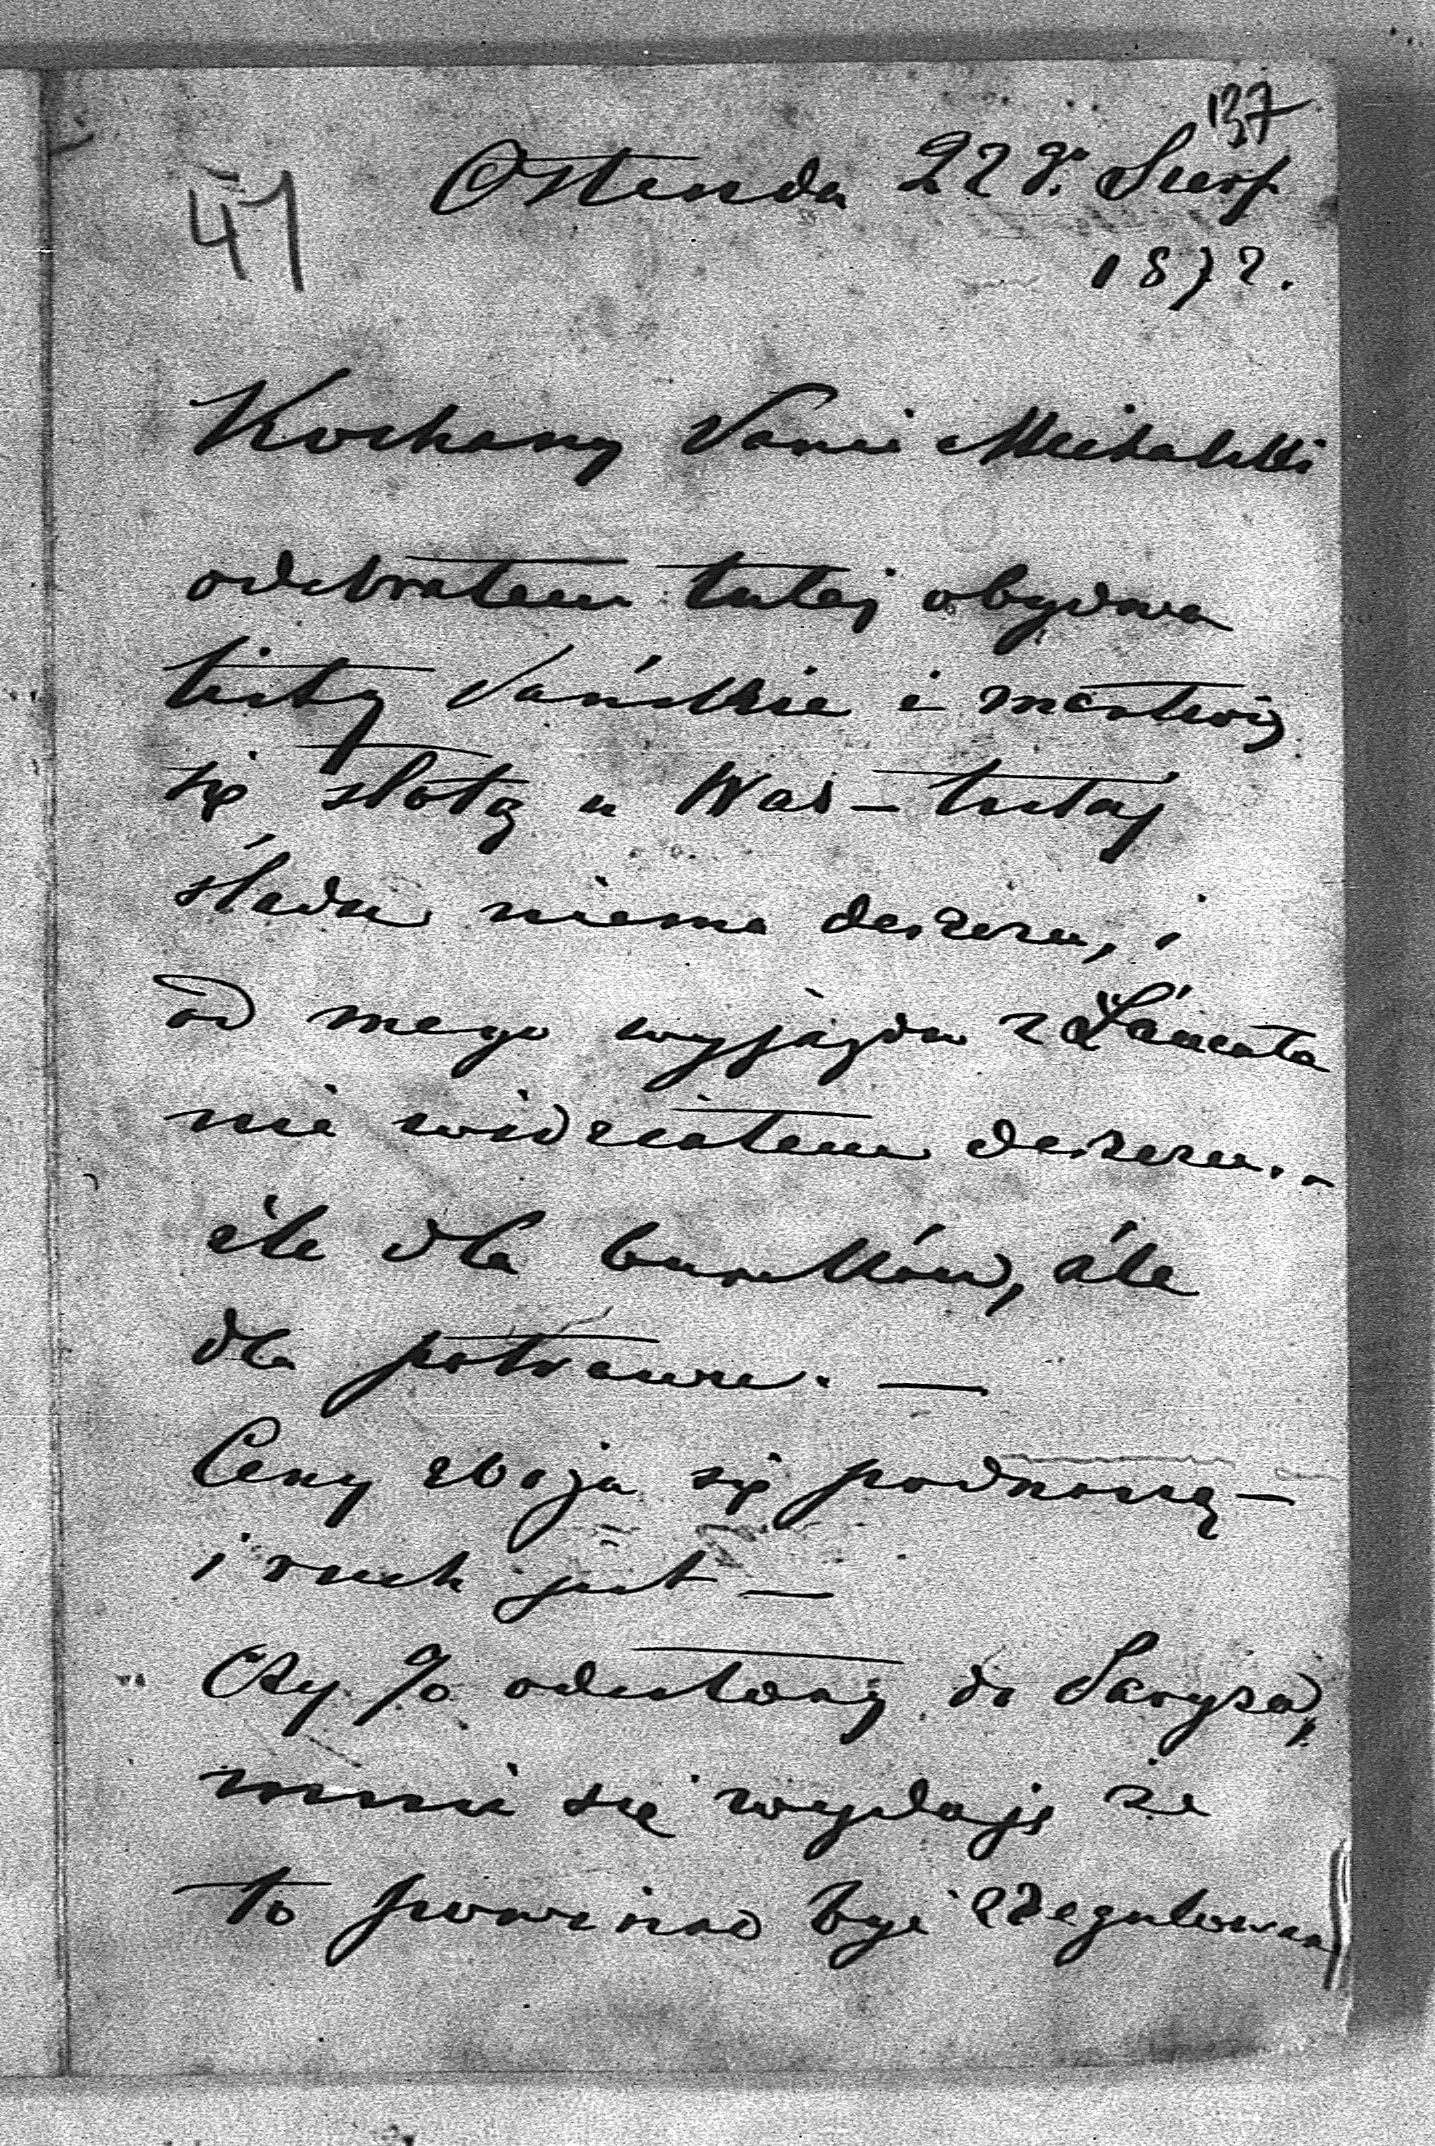 137
41
Ostenda 22 g. Sierp
1872.
Kochany Panie Michalski
odebrałem tutaj obydwa
listy Pańskie i martwię
się słotą u Was – tutaj
śladu niema deszczu, i
od mego wyjazdu z Łańcuta
nie widziałem deszczu. –
źle dla buraków, źle
dla potrawu. —
Ceny zboża się podnoszą –
i ruch jest —
Czy % odesłany do Paryża,
mnie się wydaje że
to powinno być uregulowane